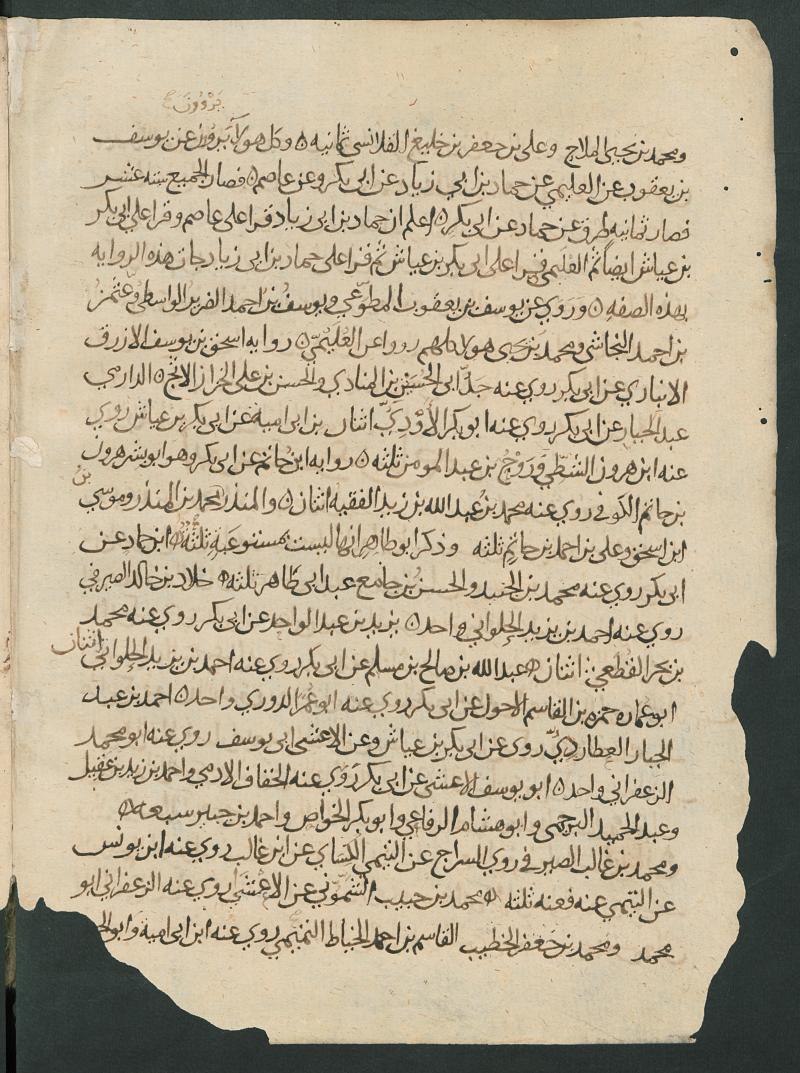 يروون
ومحمد بن يحيى الملاح وعلي بن جعفر بن خليع القلانسي ثمانيه ه وكل هولا يروون عن يوسف
بن يعقوب عن العليمي عن حماد بن ابي زياد عن ابي بكر وعن عاصم ه فصار الجميع سته عشر
فصار ثمانيه طرق عن حماد عن ابي بكر ه اعلم ان حماد بن ابي زياد قرا على عاصم وقرا على ابي بكر
بن عياش ايضا ثم العليمي قرا على ابي بكر بن عياش ثم قرا على حماد بن ابي زياد جات هذه الروايه
بهذه الصفه ه وروي عن يوسف بن يعقوب المطوعي ويوسف بن احمد الضرير الواسطي وعثمن
بن احمد النجاشي ومحمد بن يحيى هولا كلهم رووا عن العليمي ه روايه اسحق بن يوسف الازرق
الانباري عن ابي بكر روي عنه جد ابي الحسين بن المنادي والحسن بن علي الخراز الابح ه الدارمي
عبد الجبار عن ابي بكر روي عنه ابو بكر الاودي اثنان بن ابي اميه عن ابي بكر بن عياش روي
عنه ابن هرون الشطي وروح بن عبد المومن ثلثه ه روايه ابن حاتم عن ابي بكر وهو ابو بشر هرون
بن حاتم الكوفي روي عنه محمد بن عبد الله بن زيد الفقيه اثنان ه والمنذر محمد بن المنذر وموسى بن
ابن اسحق وعلي بن احمد بن حاتم ثلثه وذكر ابو طاهر انها ليست بمستوعبه ثلثه ه ابن حماد عن
ابي بكر روي عنه محمد بن الجنيد والحسن بن جامع عبد ابي طاهر ثلثه ه خلاد بن خالد الصيرفي
روي عنه احمد بن يزيد الحلواني واحد ه يزيد بن عبد الواحد عن ابي بكر روي عنه محمد
بن بحر القطعي اثنان ه عبد الله بن صالح بن مسلم عن ابي بكر روي عنه احمد بن يزيد الحلواني اثنان
ابو عماره حمزه بن القاسم الاحول عن ابي بكر روي عنه ابو عمر الدوري واحد ه احمد بن عبد
الجبار العطاردي روى عن ابي بكر بن عياش وعن الاعشى ابي يوسف روي عنه ابو محمد
الزعفراني واحد ه ابو يوسف الاعشى عن ابي بكر روي عنه الخفاف الادمي واحمد بن زيد بن عقيل
وعبد الحميد البرجمي وابو هشام الرفاعي وابو بكر الخواص واحمد بن جبير سبعه ه
ومحمد بن غالب الصيرفي روي السراج عن التيمي الكساي عن ابن غالب روي عنه ابن يونس
عن التيمي عنه فعنه ثلثه ه محمد بن حبيب الشموني عن الاعشى روي عنه الزعفراني ابو
محمد ومحمد بن جعفر الخطيب القاسم بن احمد الخياط التميمي روي عنه ابن ابي اميه